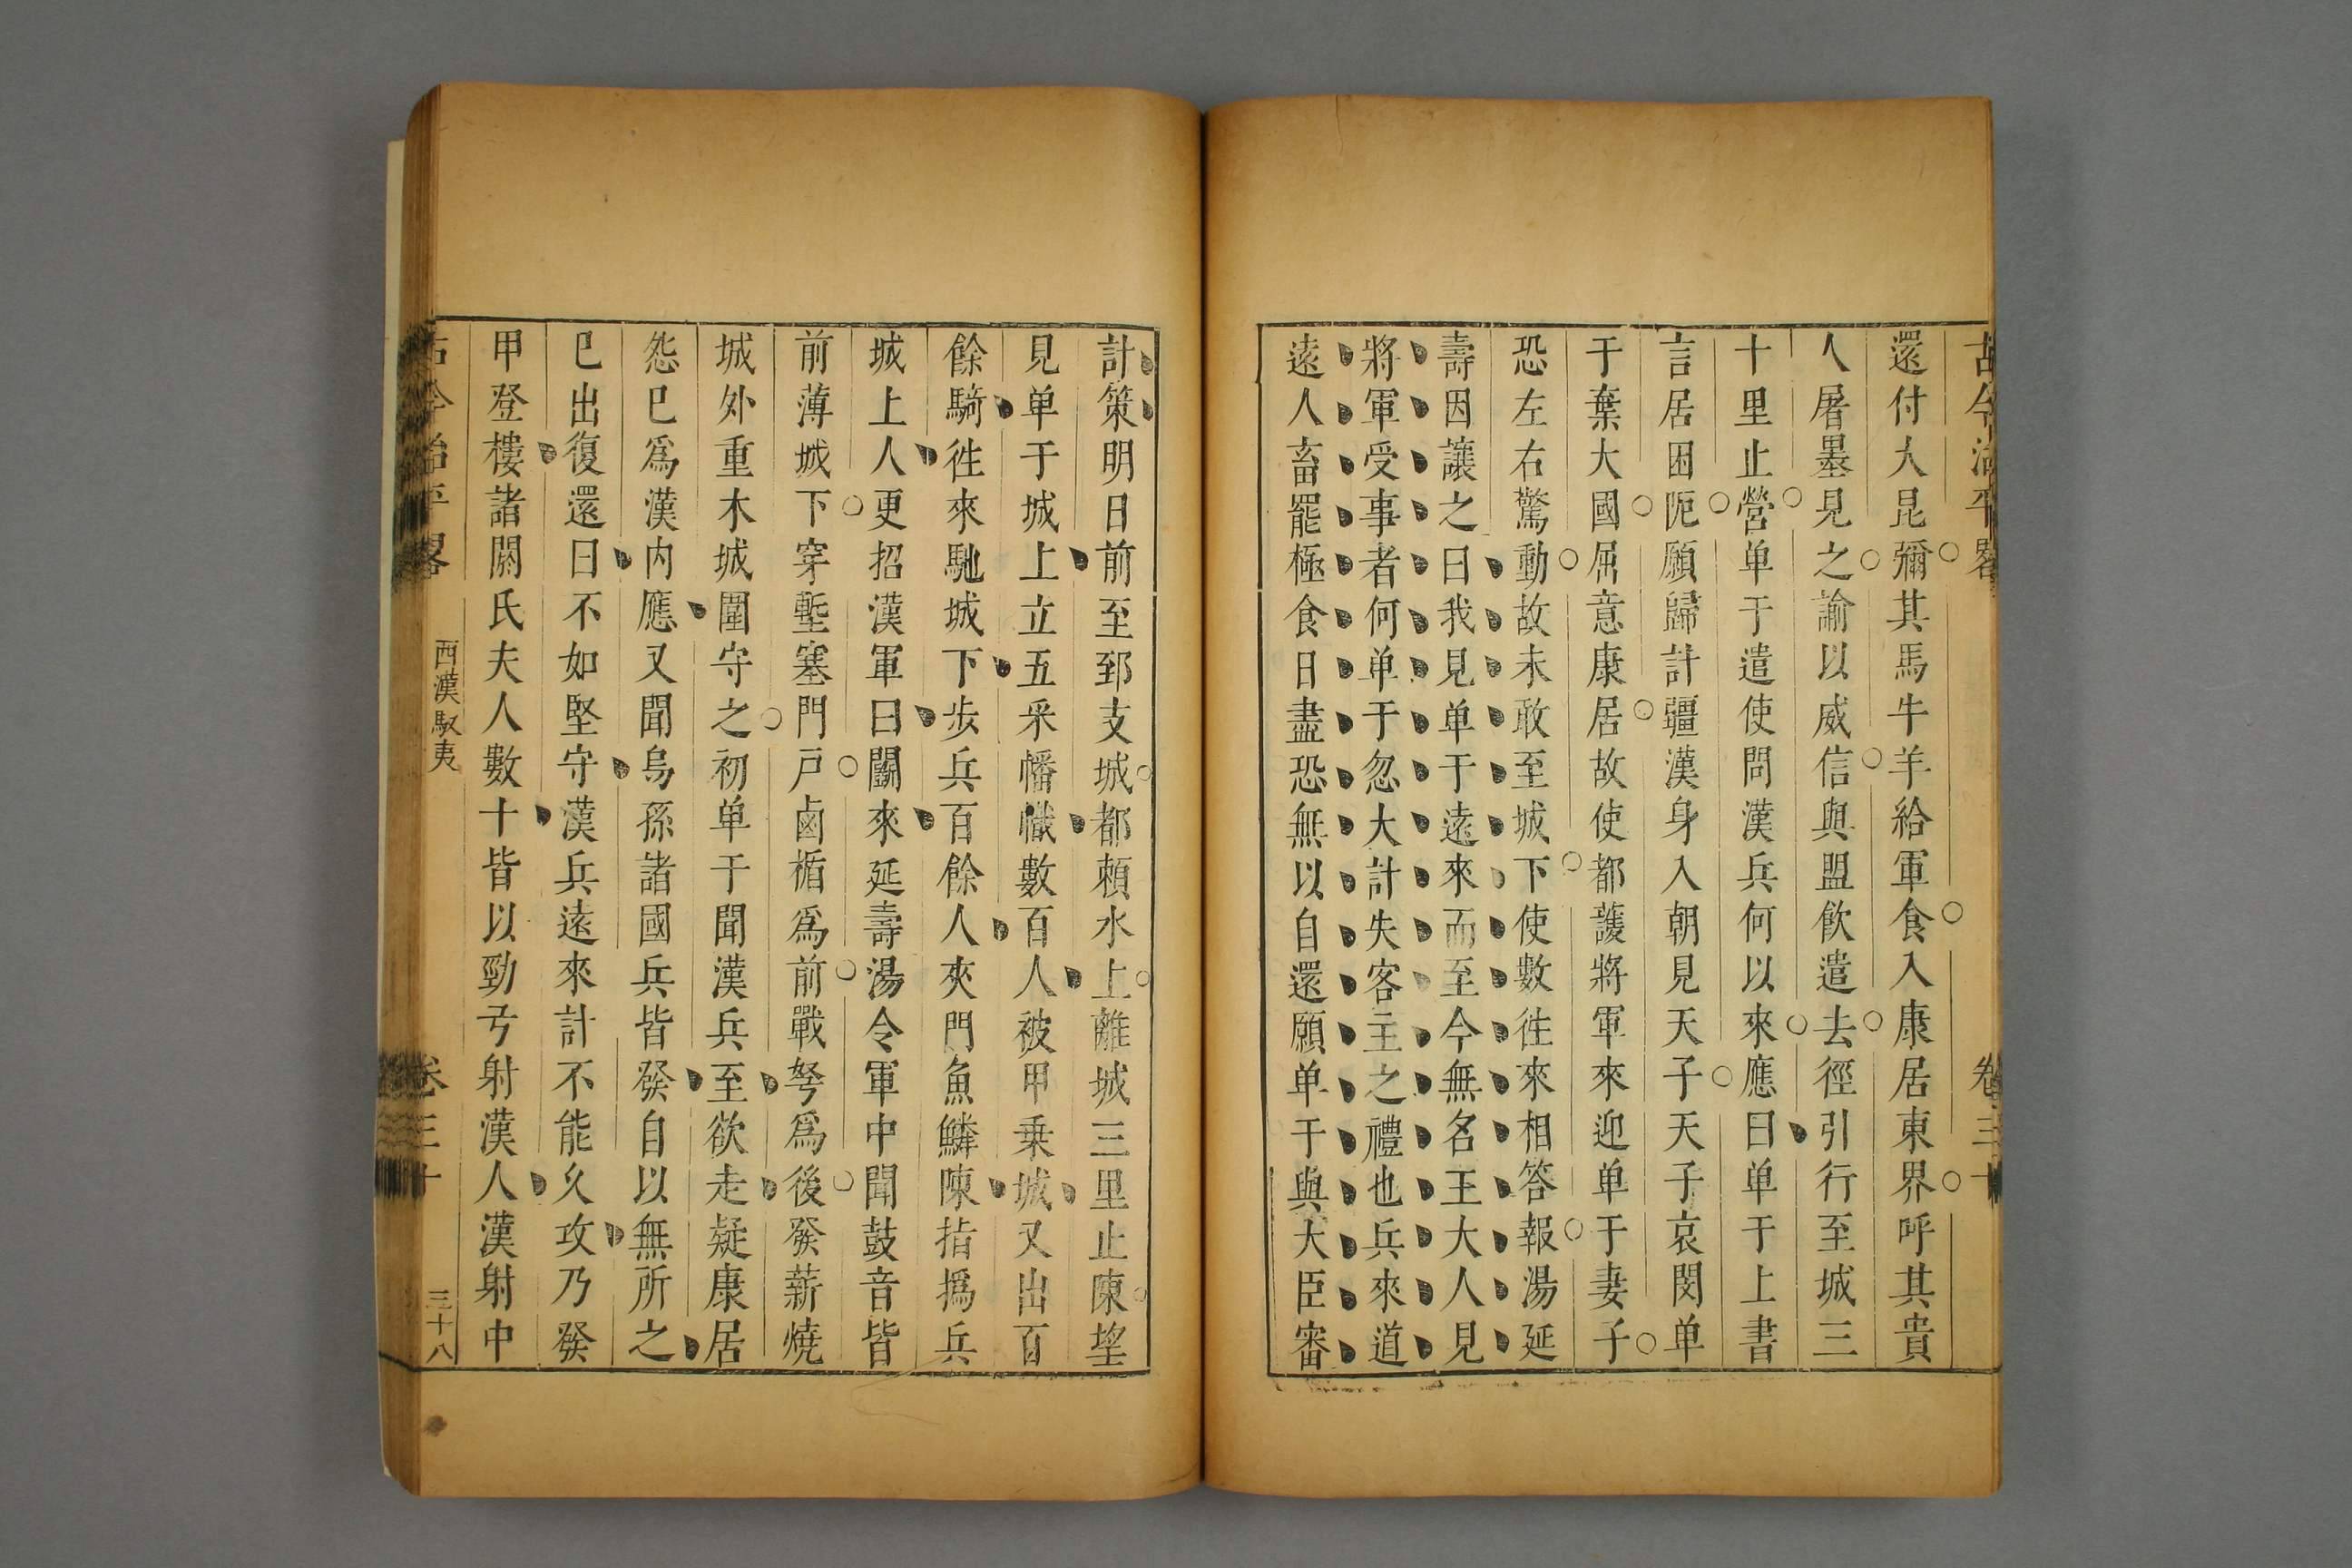 古今治平畧 卷三十
還付大昆彌其馬牛羊給軍食入康居東界呼其貴
人屠墨見之諭以威信與盟飲遣去徑引行至城三
十里止營单于遣使問漢兵何以來應曰单于上書
言居困阨願歸計疆漢身入朝見天子天子哀閔单
于棄大國屈意康居故使都護將軍來迎单于妻子
恐左右驚動故未敢至城下使數徃來相答報湯延
壽因讓之曰我見单于遠來而至今無名王大人見
將軍受事者何单于忽大計失客主之禮也兵來道
遠人畜罷極食日盡恐無以自還願单于與大臣審
計策明日前至郅支城都頼水上離城三里止陳望
見单于城上立五采幡幟數百人被甲乗城又出百
餘騎徃來馳城下歩兵百餘人夾門魚鱗陳指撝兵
城上人更招漢軍曰鬬來延壽湯令軍中聞鼓音皆
前薄城下穿塹塞門戸鹵楯爲前戰弩爲後發薪燒
城外重木城圍守之初单于聞漢兵至欲走疑康居
怨巳爲漢内應又聞烏孫諸國兵皆發自以無所之
巳出復還曰不如堅守漢兵遠來計不能久攻乃發
甲登樓諸閼氏夫人數十皆以勁弓射漢人漢射中
古今治平畧 西漢馭夷 卷三十 三十八